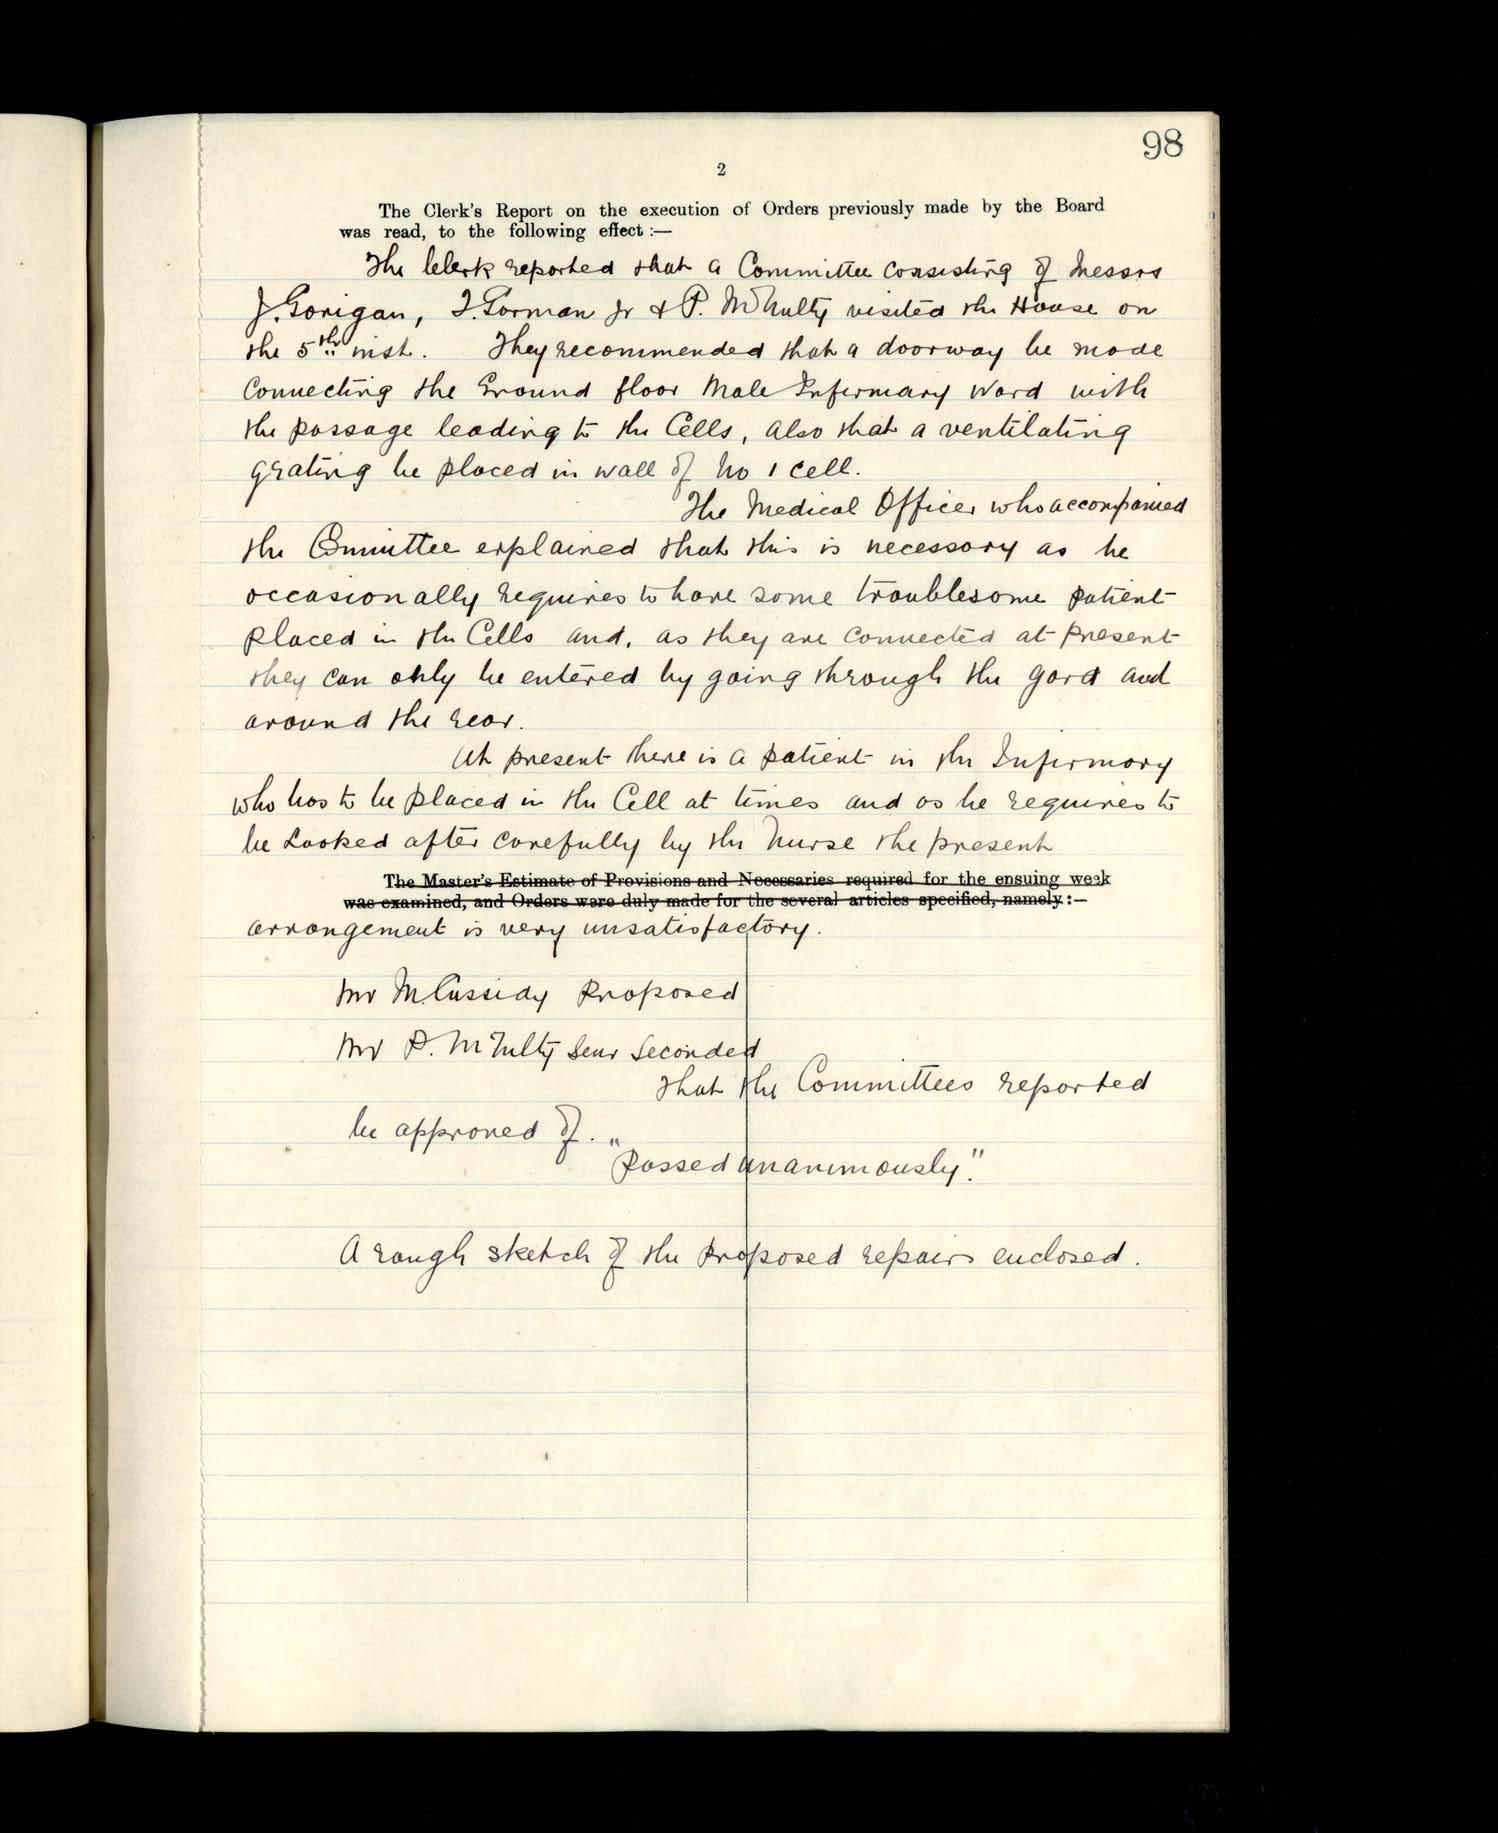 98
2
The Clerk's Report on the execution of Orders previously made by the Board
was read, to the following effect :—
The Clerk reported that a Committee consisting of Messrs
J. Gorigan, T. Gorman Jr & P. McNulty visited the House on
the 5th inst. They recommended that a doorway be made
Connecting the Ground floor Male Infirmary Ward with
the passage leading to the Cells, also that a ventilating
grating be placed in wall of No 1 cell.
The Medical Officer who accompanied
the Committee explained that this is necessary as he
occasionally requires to have some troublesome patient
placed in the Cells and, as they are connected at present
they can only be entered by going through the yard and
around the rear.
At present there is a patient in the Infirmary
who has to be placed in the Cell at times and as he requires to
be looked after carefully by the Nurse the present
The Master's Estimate of Provisions and Necessaries required for the ensuing week
was examined, and Orders were duly made for the several articles specified, namely :—
arrangement is very unsatisfactory.
Mr M. Cassidy Proposed
Mr P. McNulty Senr Seconded
That the Committees reported
be approved of.
"Passed unanimously."
A rough sketch of the proposed repairs enclosed.